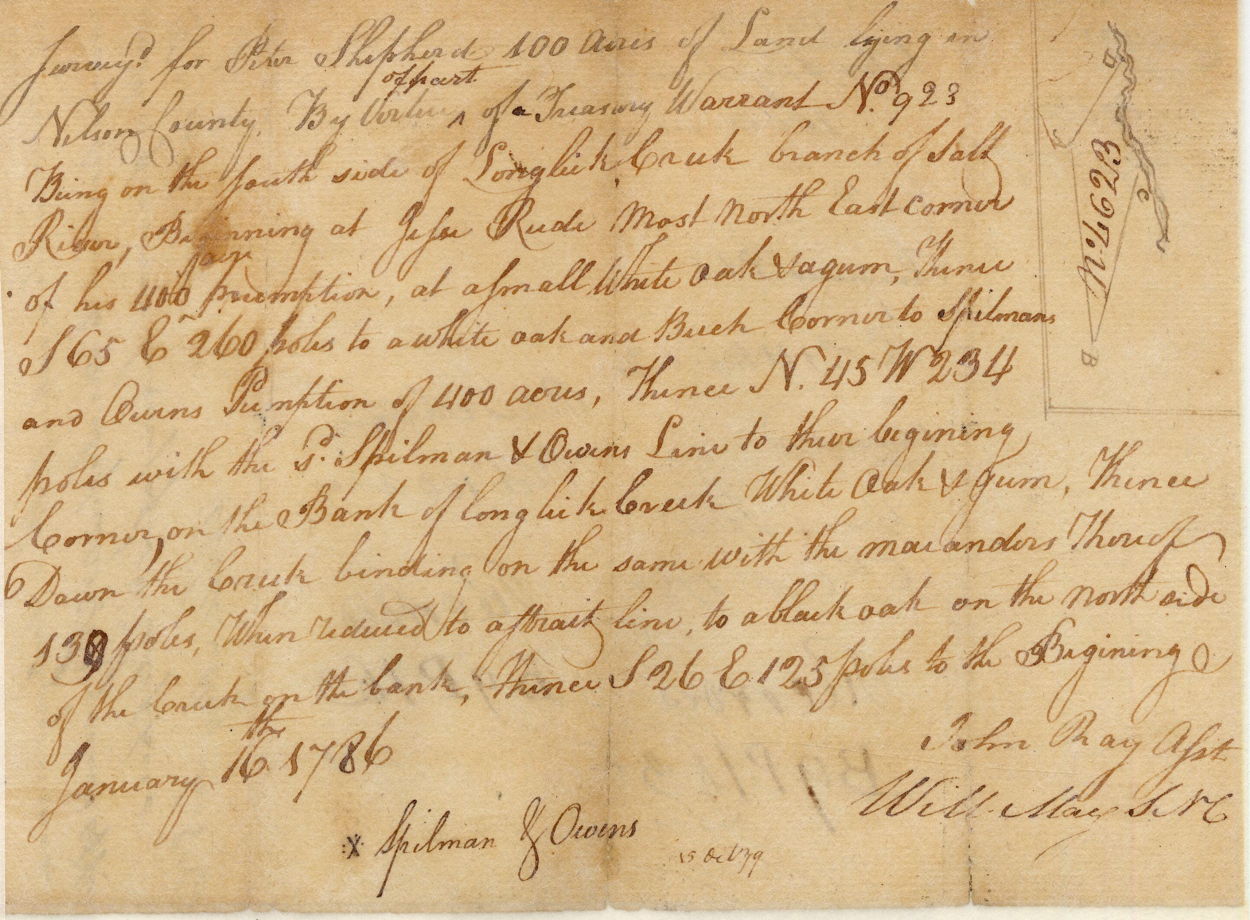 Survey.d for Peter Shepherd 100 acres of Land lying in
Nelson County. By Virtue ^ of part of a Treasury Warrant No. 923
Being on the South side of Longlick Creek branch of Salt
River, Beginning at Jesse Rude Most North East corner
of his 400 acre preemption, at a small White oak & a gum, Thence
S 65 E 260 poles to a white oak and Beech Corner to Spilmans
and Owens Pemption of 400 acres, Thence N. 45 W 234
poles with the s.d Spilman & Owens Line to their begining
Corner, on the Bank of longlick Creek White Oak & gum, Thence
Down the Creek binding on the same with the maeanders Thereof
139 poles, When reduced to a strait line, to a black oak on the North side
of the Creek on the bank, thence S 26 E 125 poles to the Begining
January 16th 1786
John Ray Asst
Will May S N C
x Spilman & Owens
15 Oct 79
No. 7623
A
B
C
D